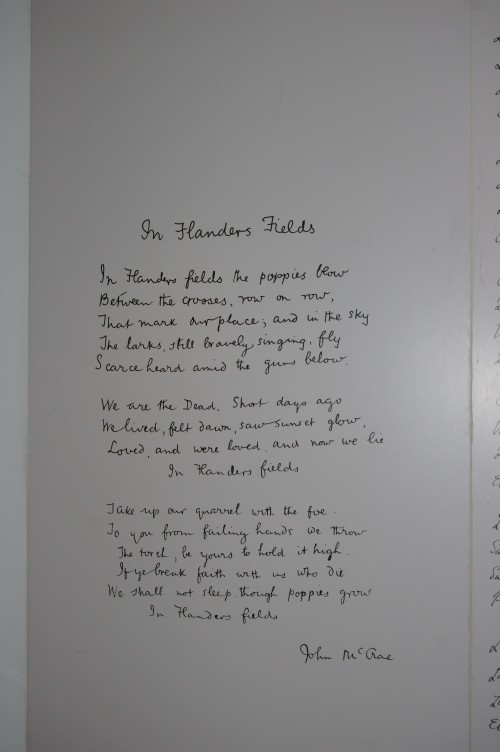 In Flanders Fields
In Flanders fields the poppies blow
Between the crosses, row on row,
That mark our place; and in the sky
The larks, still bravely singing, fly
Scarce heard amid the guns below.
We are the Dead. Short days ago
We lived, felt dawn, saw sunset glow,
Loved, and were loved, and now we lie
In Flanders fields
Take up our quarrel with the foe.
To you from failing hands we throw
The torch, be yours to hold it high.
If ye break faith with us who die
We shall not sleep though poppies grow
In Flanders fields
John McCrae